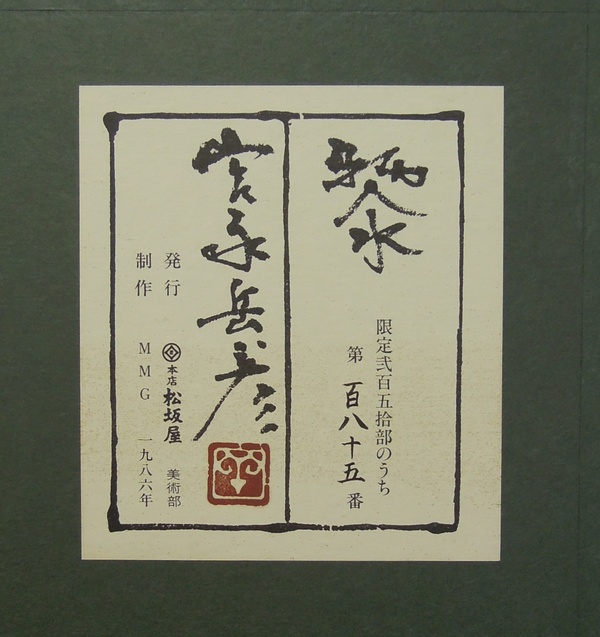 黎
限定弐百五拾部のうち
第 百八十五 番
宮永岳彦
発行 本店 松坂屋 美術部
制作 MMG 一九八六年